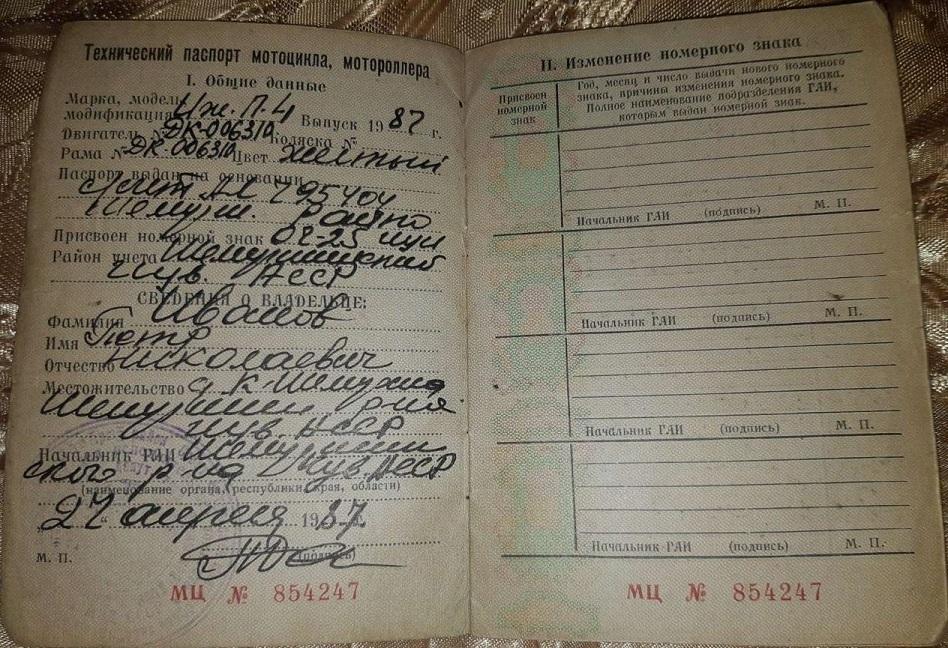 Технический паспорт мотоцикла, мотороллера
I. Общие данные
Марка, модель
модификация Иж.П.4 Выпуск 1987 г.
Двигатель № ДК-006310 Коляска №
Рама № ДК 006310 Цвет желтый
Паспорт выдан на основании
795404
Шемурш. Райпо
Присвоен номерной знак 02-25
Район учета Шемуршинский
Чув. АССР
СВЕДЕНИЯ О ВЛАДЕЛЬЦЕ:
Фамилия Иванов
Имя Петр
Отчество Николаевич
Местожительство д.
Чув. АССР
Начальник ГАИ Шемуршин
ского р-на Чув. АССР
(наименование органа, республики, края, области)
"24" апреля 1987 г.
М. П. (подпись)
МЦ № 854247
II. Изменение номерного знака
Присвоен номерной знак
Год, месяц и число выдачи нового номерного
знака, причины изменения номерного знака.
Полное наименование подразделения ГАИ,
которым выдан номерной знак.
Начальник ГАИ (подпись) М. П.
Начальник ГАИ (подпись) М. П.
Начальник ГАИ (подпись) М. П.
Начальник ГАИ (подпись) М. П.
МЦ № 854247